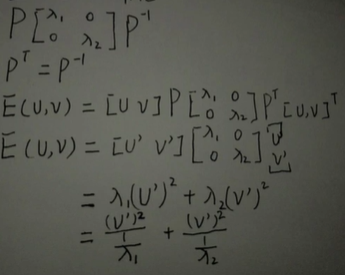 P [λ₁ 0 0 λ₂] P⁻¹
Pᵀ = P⁻¹
E(u,v) = [u v] P [λ₁ 0 0 λ₂] Pᵀ [u,v]ᵀ
E(u,v) = [u' v'] [λ₁ 0 0 λ₂] [u' v']
= λ₁(u')² + λ₂(v')²
= (u')² / (1/λ₁) + (v')² / (1/λ₂)